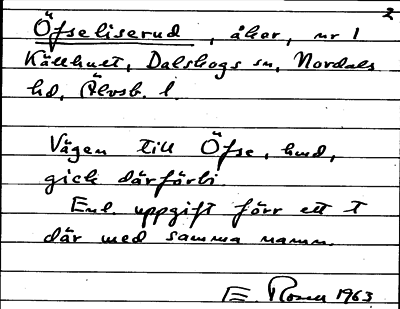 2
Öfseliserud, åker, nr 1
Källhult, Dalskogs sn, Nordals
hd, Älvsb. l.
Vägen till Öfse, hmd,
gick därförbi.
Enl. uppgift förr ett T
där med samma namn.
E. Rosen 1963